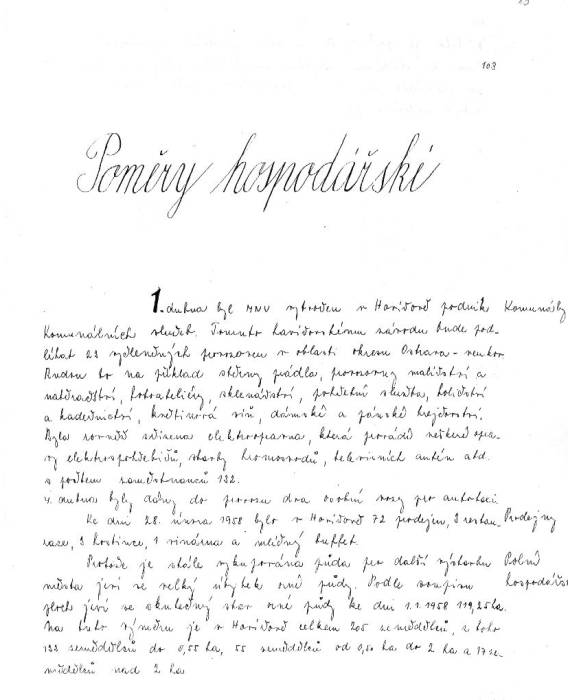 103
Poměry hospodářské
1. dubna byl MNV vytvořen v Havířově podnik Komunály
Komunálních služeb. Tomuto havířovskému závodu bude pod-
léhat 23 vydlených provozoven v oblasti okresu Ostrava-venkov
Budou to na příklad sběrny prádla, provozovny malířství a
natěračství, fotoateliéry, sklenářství, pohřební služba, holičství
a kadeřnictví, květinová síň, dámské a pánské krejčovství.
Byla rovněž zřízena elektroopravna, která provádí veškeré opra-
vy elektrospotřebičů, stavby hromosvodů, televisních antén atd.
s počtem zaměstnanců 132.
4. dubna byly dány do provozu dva osobní vozy pro autotaxi
Ke dni 28. února 1958 bylo v Havířově 72 prodejen, 3 restau- Prodejny
race, 3 hostince, 1 vinárna a mléčný buffet.
Protože je stále vykupována půda pro další výstavbu Polní
města jeví se velký úbytek orné půdy. Podle soupisu hospodářst
ploch jeví se skutečný stav orné půdy ke dni 1.1.1958 119,25 ha.
Na tuto výměru je v Havířově celkem 205 zemědělců, z toho
133 zemědělců do 0,55 ha, 55 zemědělců od 0,50 ha do 2 ha a 17 ze-
mědělců nad 2 ha